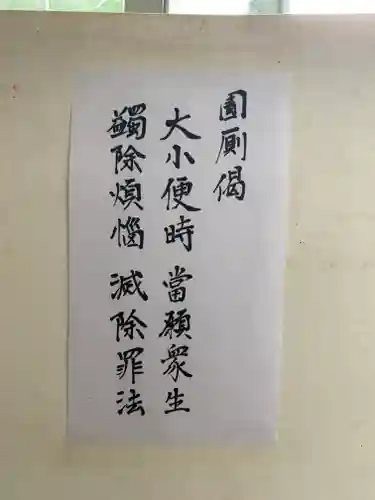 圊厠偈
大小便時 當願眾生
蠲除煩惱 滅除罪法